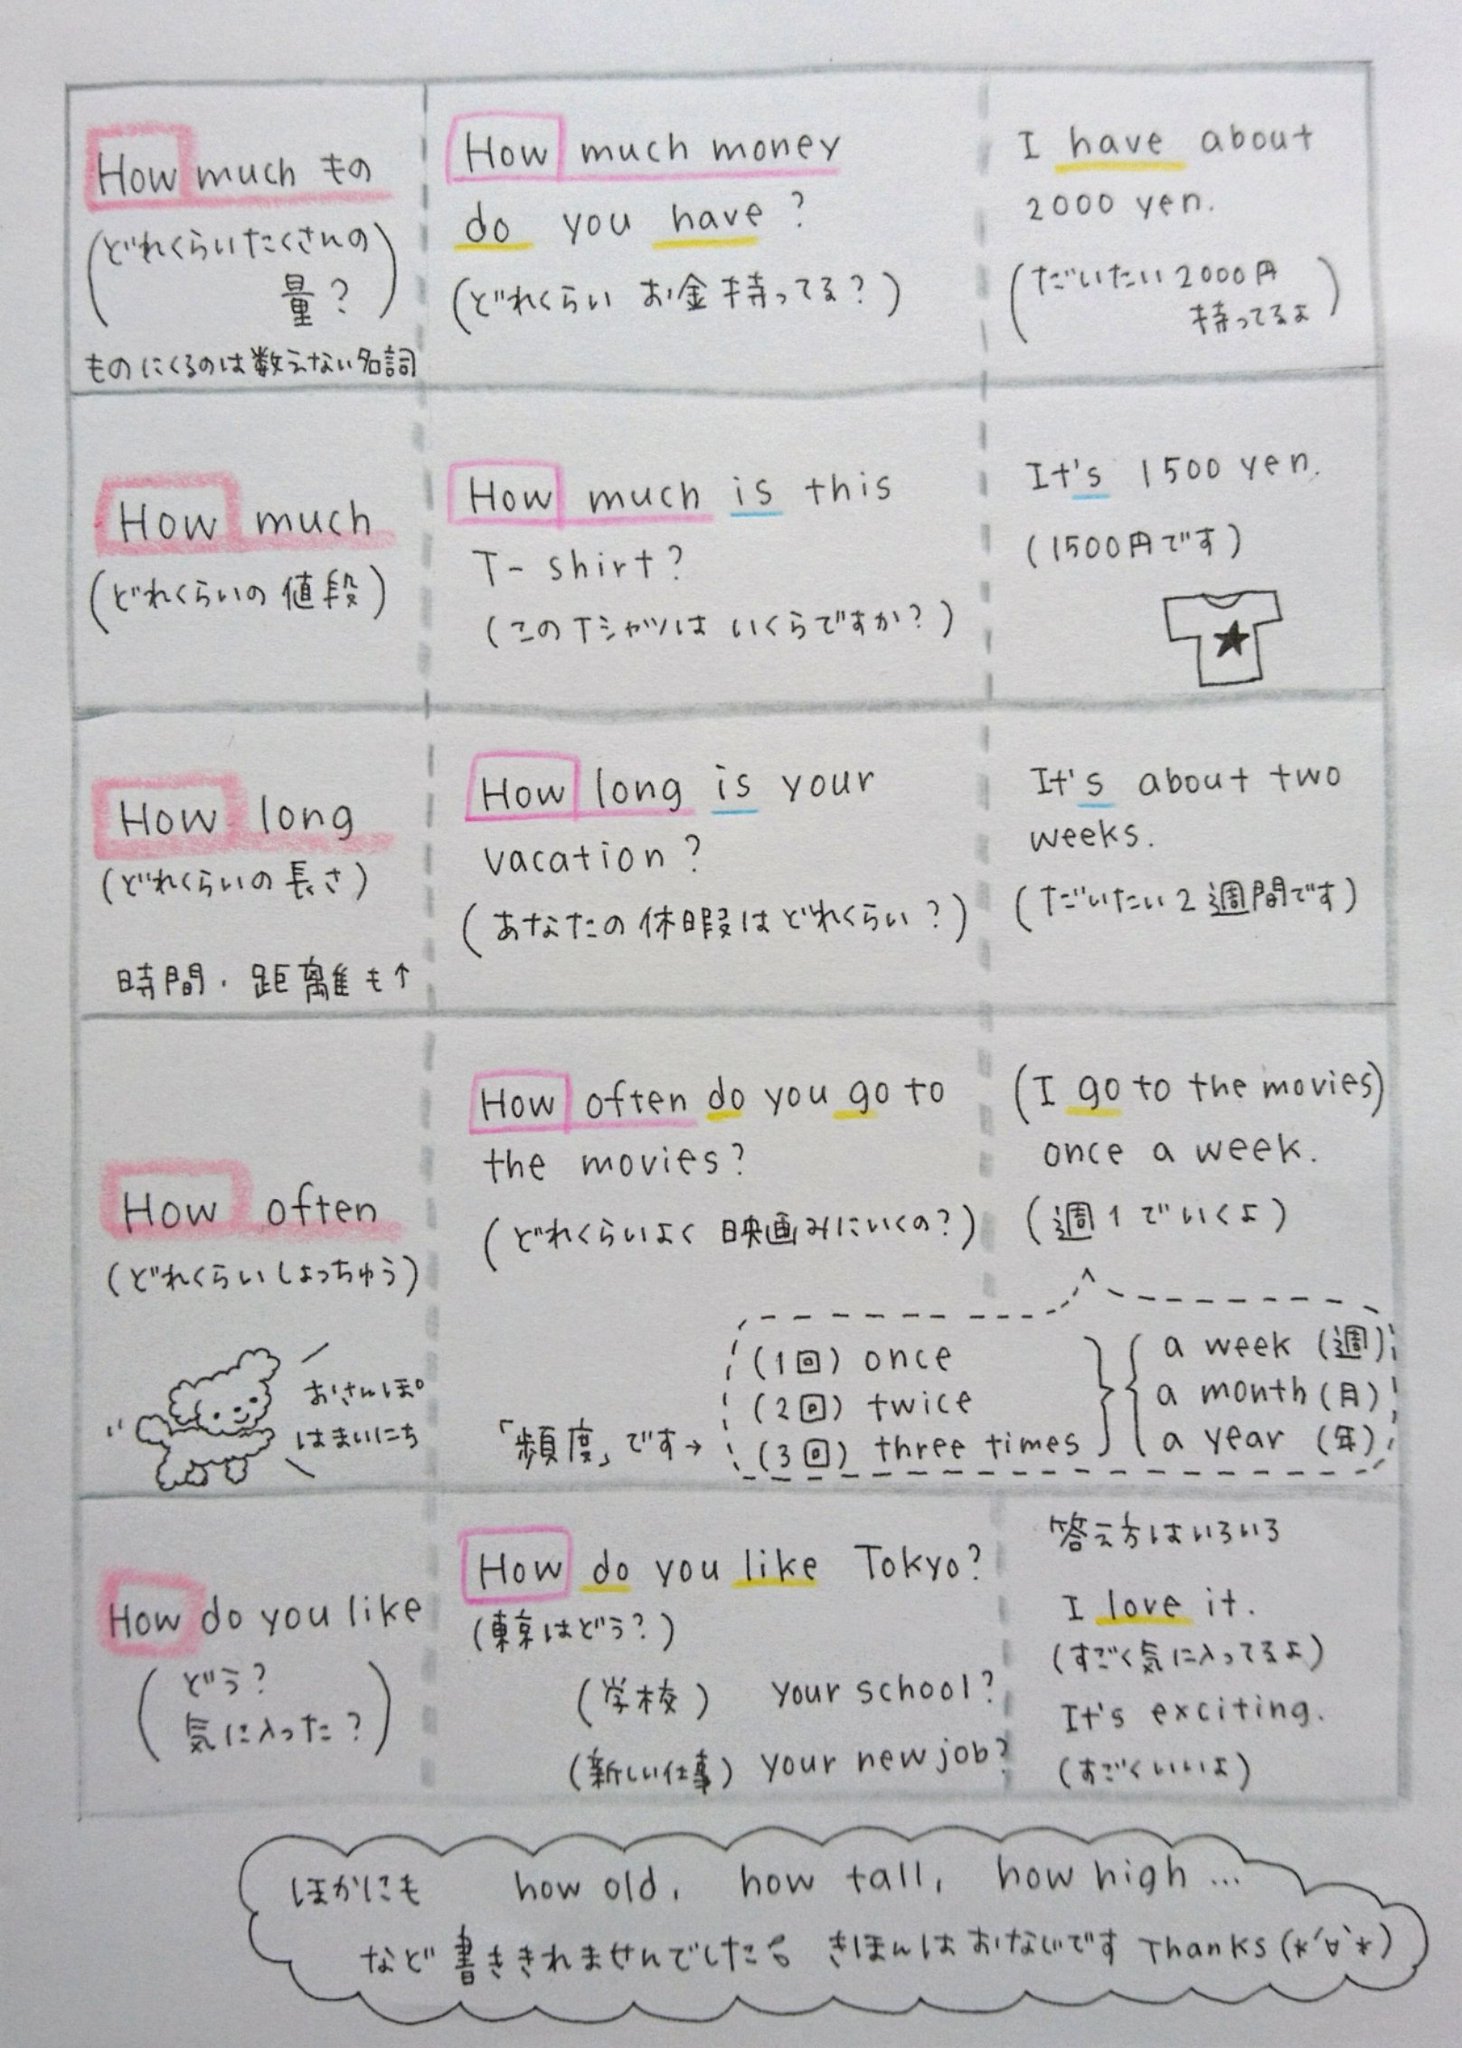 How much もの
(どれくらいたくさんの
量?)
ものにくるのは数えない名詞
How much money
do you have?
(どれくらい お金持ってる?)
I have about
2000 yen.
(だいたい2000円
持ってるよ)
How much
(どれくらいの値段)
How much is this
T-shirt?
(このTシャツは いくらですか?)
It's 1500 yen.
(1500円です)
How long
(どれくらいの長さ)
時間・距離も↑
How long is your
vacation?
(あなたの休暇はどれくらい?)
It's about two
weeks.
(だいたい2週間です)
How often
(どれくらいしょっちゅう)
おさんぽ
はまいにち
How often do you go to
the movies?
(どれくらいよく 映画みにいくの?)
(I go to the movies)
once a week.
(週1でいくよ)
「頻度」です→
(1回) once
(2回) twice
(3回) three times
a week (週)
a month (月)
a year (年)
How do you like
(どう?
気に入った?)
How do you like Tokyo?
(東京はどう?)
(学校) your school?
(新しい仕事) your new job?
答え方はいろいろ
I love it.
(すごく気に入ってるよ)
It's exciting.
(すごくいいよ)
ほかにも how old, how tall, how high...
など書ききれませんでした きほんはおなじです Thanks(*'∀'*)